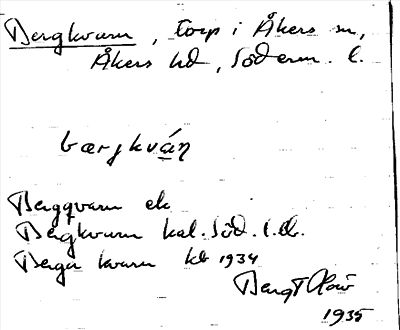 Bergkvarn, torp i Åkers sn,
Åkers hd, Söderm. l.
bærjkváṇ
Bergqvarn ek
Bergkvarn kal. Söd. l.
Berga kvarn kb 1934
Bengt
1935